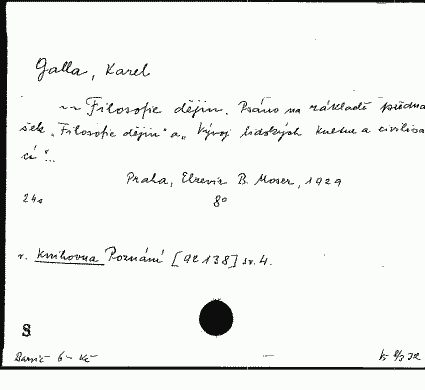 Galla, Karel
~~ Filosofie dějin. Psáno na základě předná
šek „Filosofie dějin" a „Vývoj lidských kultur a civilisa
cí"...
Praha, Elzevir B. Moser, 1929
24s 8°
v. Knihovna Poznání [9E138] sv. 4.
S
6- Kč